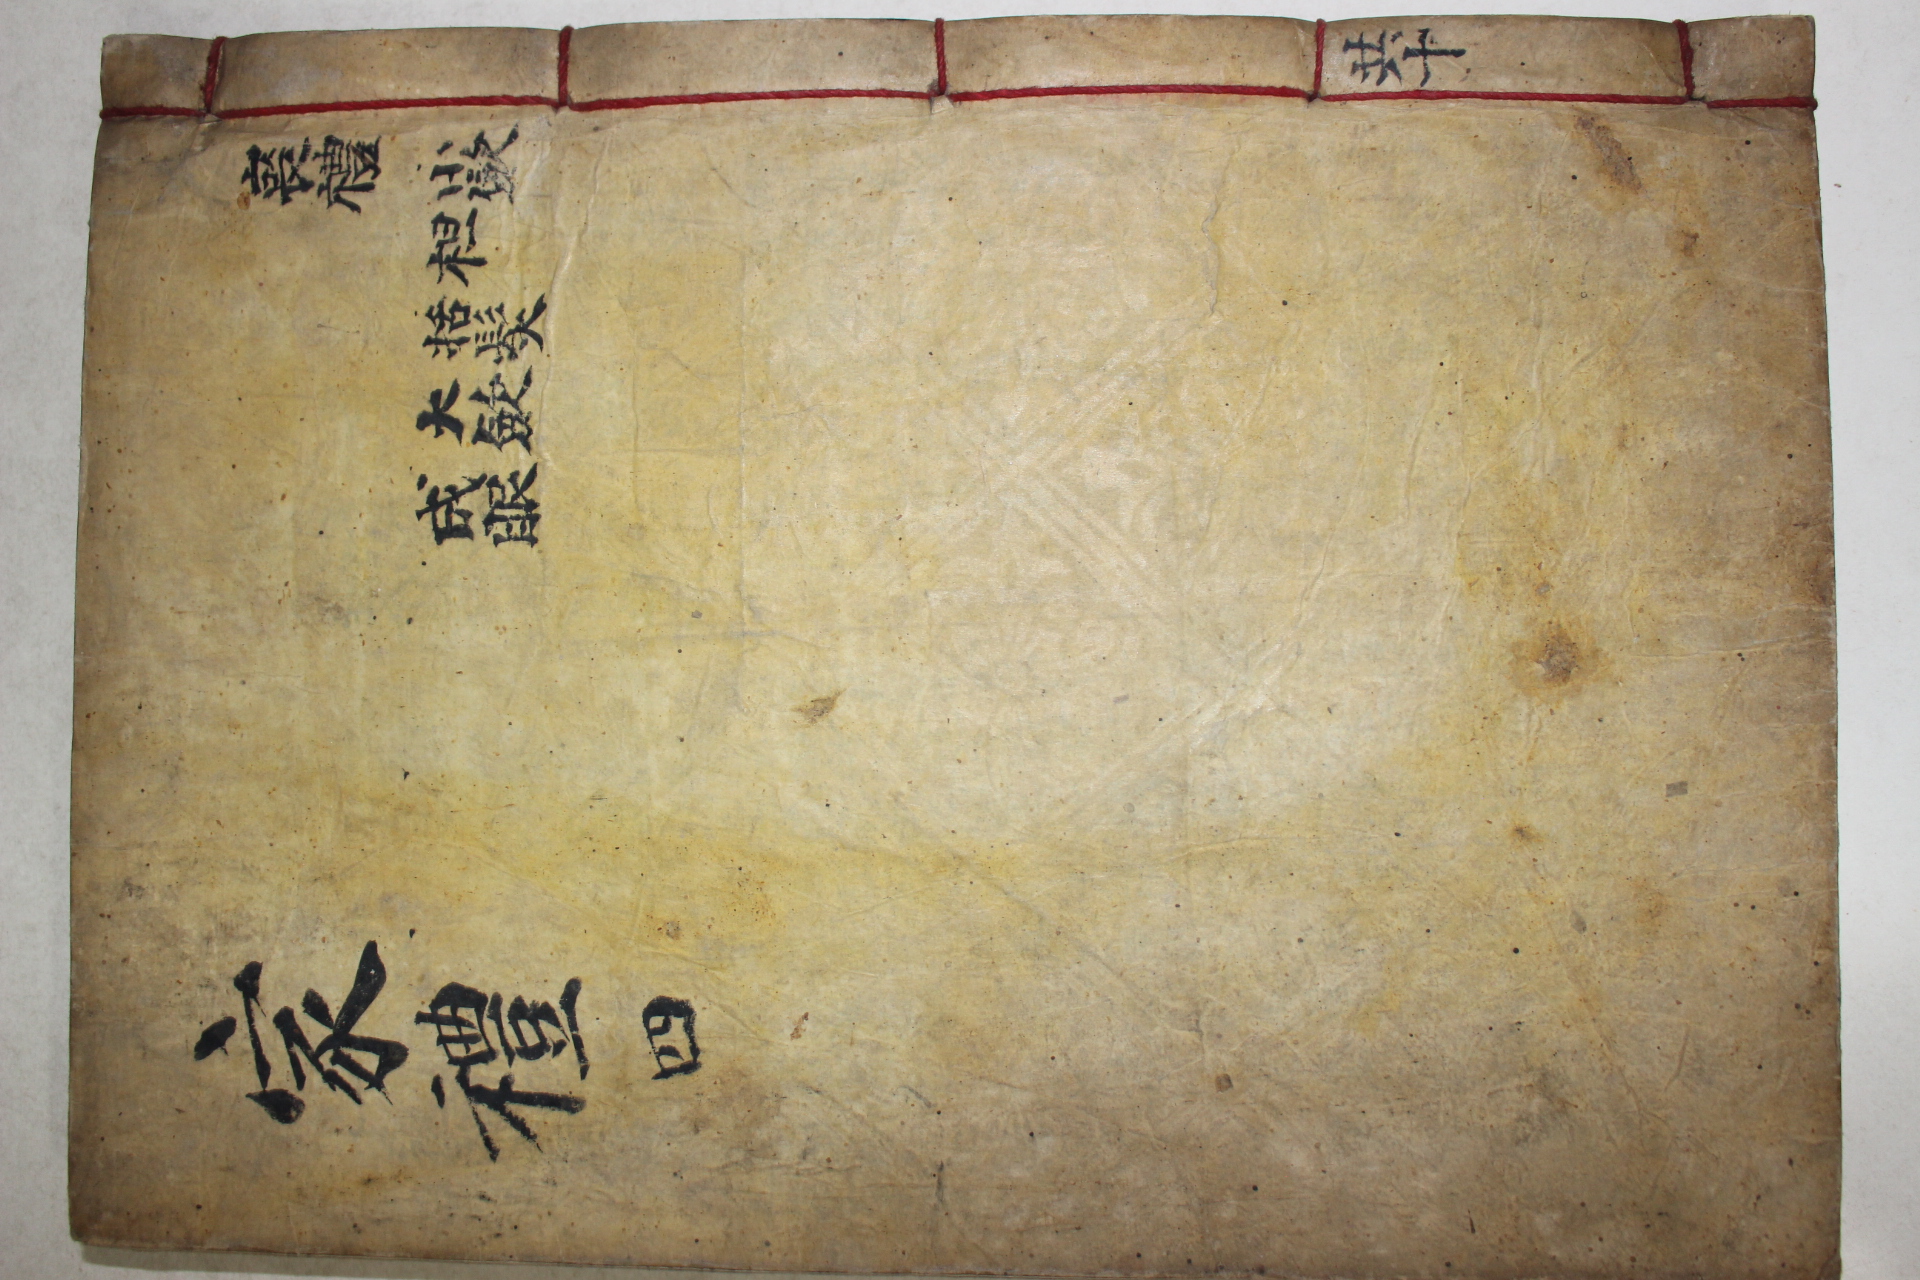 共十
喪禮
小歛
袒
括髮
大歛
成服
家禮 四